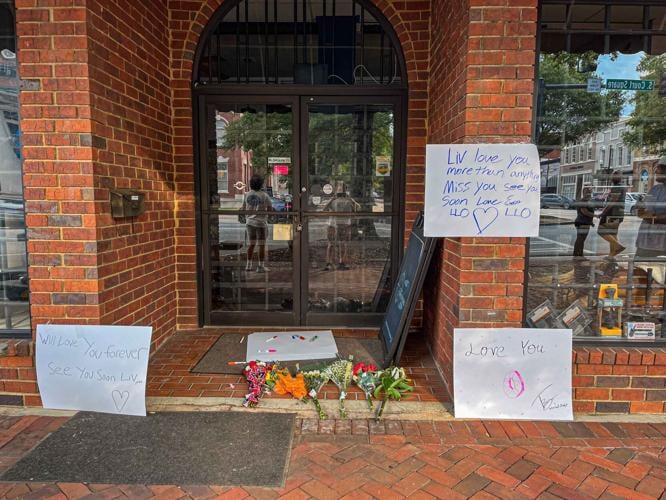 S. Court Square
Liv love you
more than anything
Miss you see you
soon Love
LLO LLO
Will Love You forever
See You Soon Liv
Love You